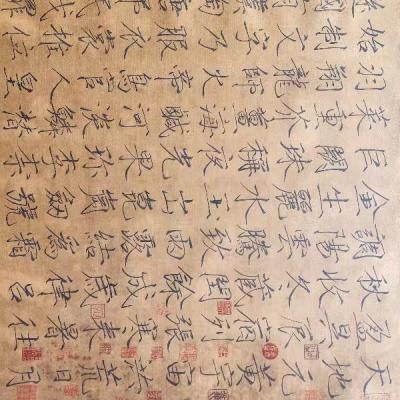 天地元黃宇宙洪荒日月
盈昃辰宿列張寒來暑往
秋收冬藏閏餘成歲律呂
調陽雲騰致雨露結爲霜
金生麗水玉出崑崗劍號
巨闕珠稱夜光果珍李柰
菜重芥薑海鹹河淡鱗潛
羽翔龍師火帝鳥官人皇
始制文字乃服衣裳推位